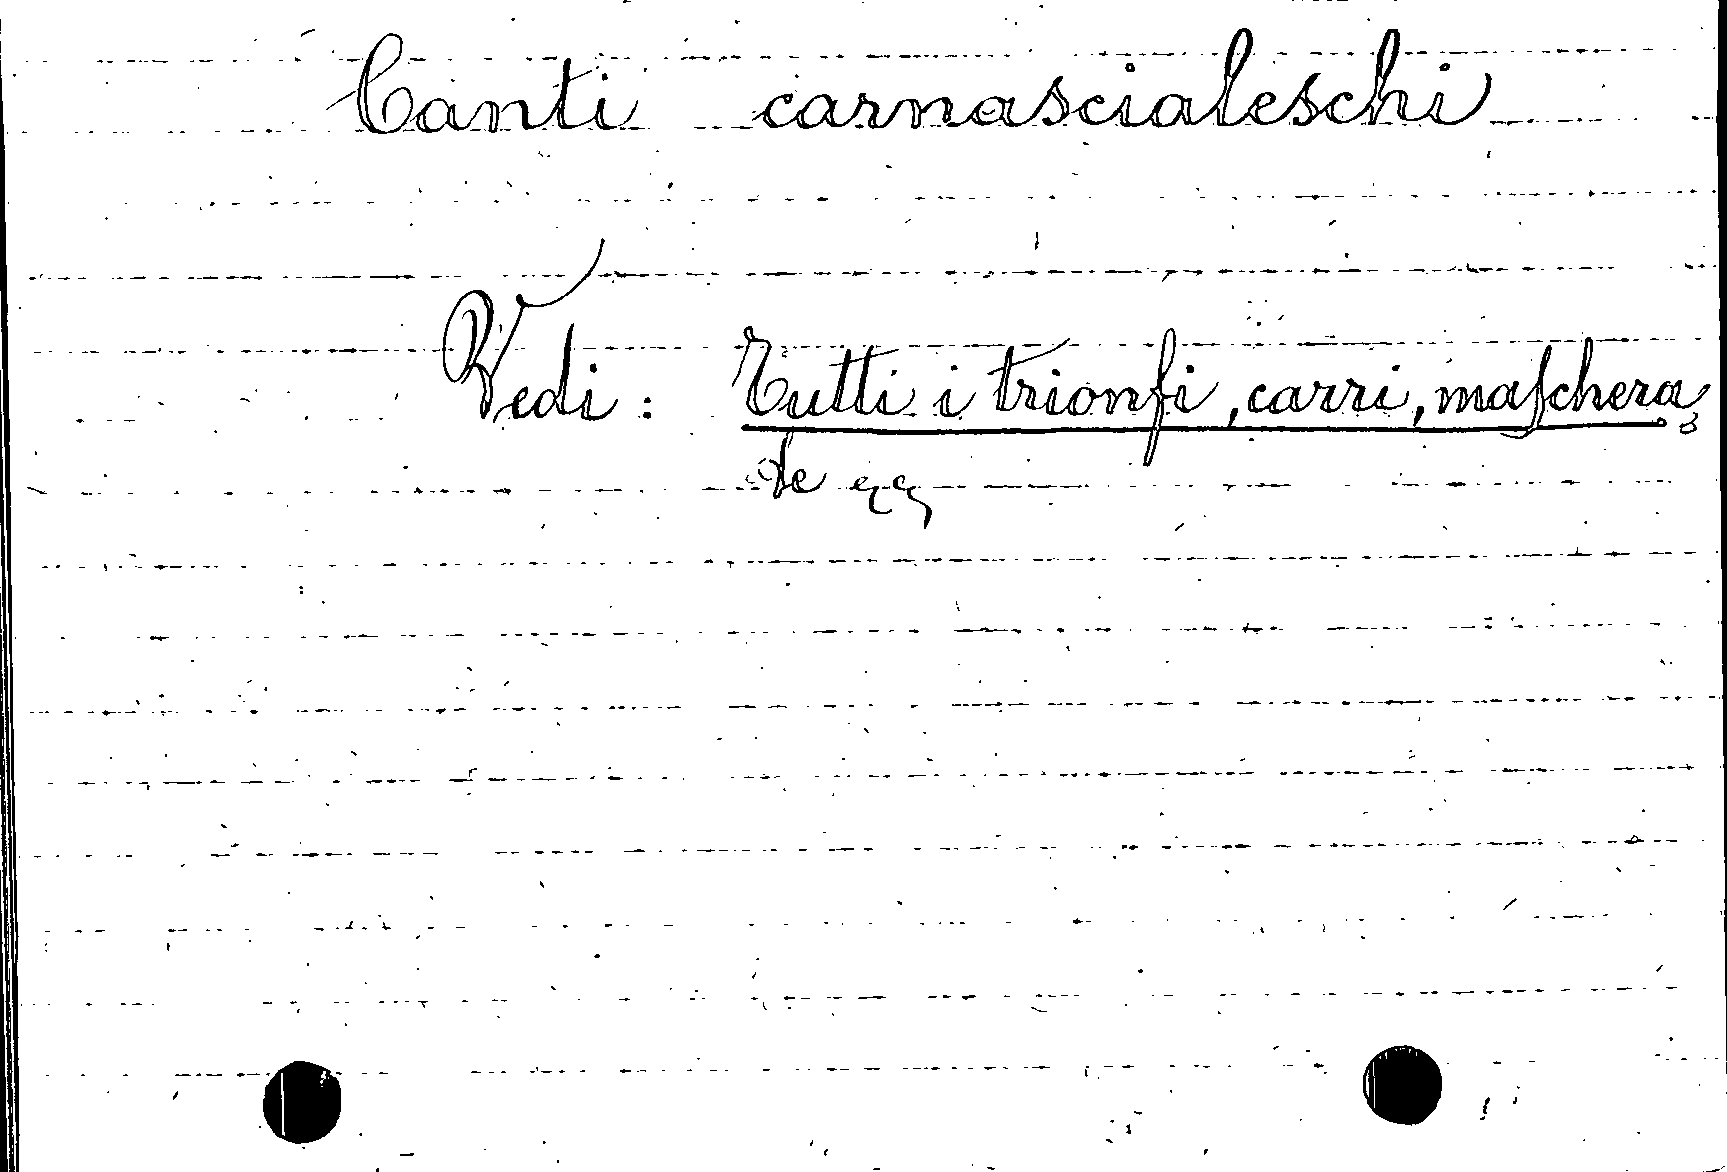 Canti carnascialeschi
Vedi: Tutti i trionfi, carri, maschera
te ecc,